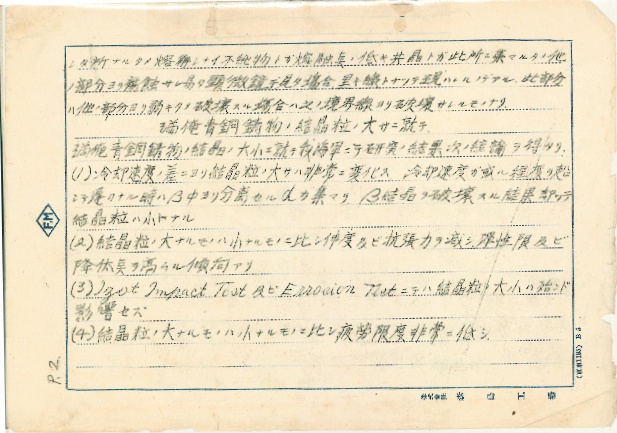 シ分析ナルタメ熔解シナイ不純物トカ熔融点ノ低キ共晶トガ此所ニ集マルタメ他
ノ部分ヨリ腐蝕サレ易ク顕微鏡デ見タ場合黒キ線トナツテ現ハルルノデアル. 此部分
ハ他ノ部分ヨリ弱キタメ破壊スル場合ハ此ノ境界線ヨリ破壊サレルモノナリ
満俺青銅鋳物ノ結晶粒ノ大サニ就テ
満俺青銅鋳物ノ結晶ノ大小ニ就テ我海軍ニテ研究ノ結果次ノ結論ヲ得タリ.
(1) 冷却速度ノ差ニヨリ結晶粒ノ大サハ非常ニ変化ス 冷却速度ガ或ル程度ヲ越
シテ遅クナル時ハβ中ヨリ分離セルαガ集マリ β結晶ヲ破壊スル結果却ツテ
結晶粒ハ小トナル
(2) 結晶粒ノ大ナルモノハ小ナルモノニ比シ伸度及ビ抗張力ヲ減シ弾性限及ビ
降伏点ヲ高ムル傾向アリ
(3) Izot Impact Test 及ビ Errosion Test ニテハ結晶粒ノ大小ハ殆ンド
影響セズ
(4) 結晶粒ノ大ナルモノハ小ナルモノニ比シ疲労限度非常ニ低シ.
P.2.
FM
株式会社